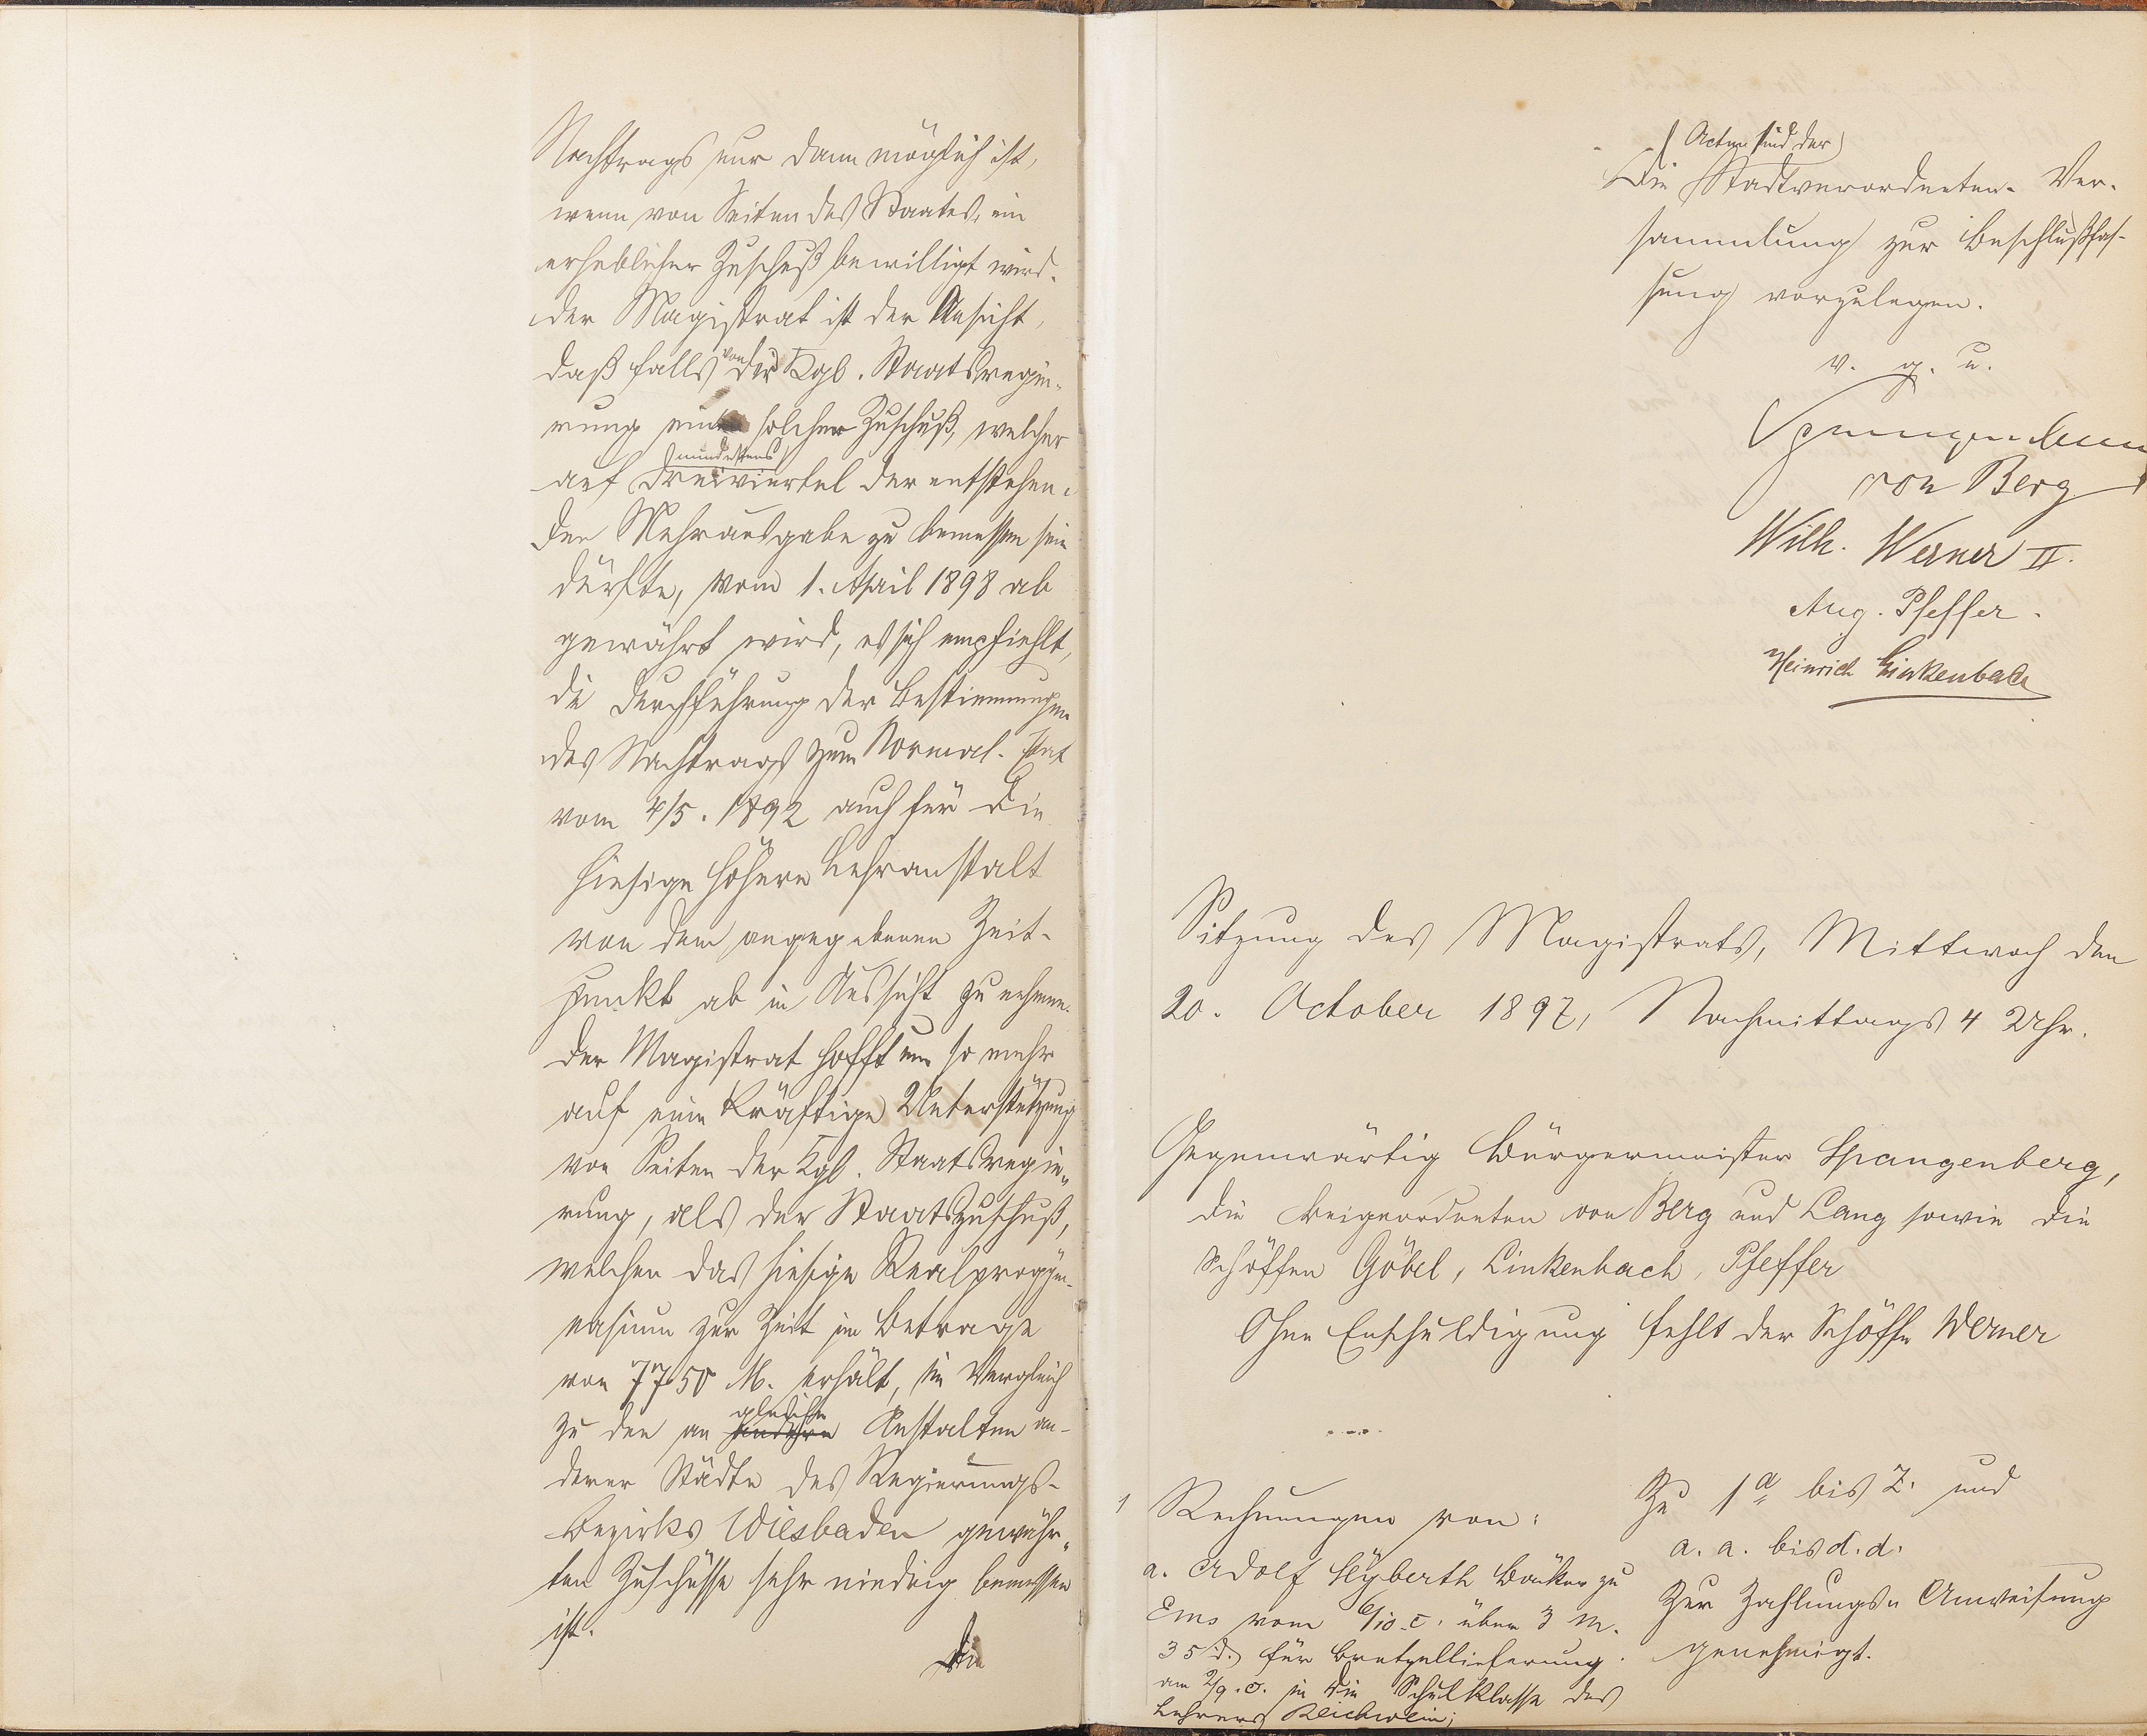 Nachtrags nur dann möglich ist,
wenn von Seiten des Staates, ein
erheblicher Zuschuß bewilligt wird.
der Magistrat ist der Ansicht,
daß falls von der Kgl. Staatsregie-
rung ein solcher Zuschuß, welcher
auf mindestens dreiviertel der entstehen-
den Mehrausgabe zu bemessen sein
dürfte, vom 1. April 1898 ab
gewährt wird, es sich empfiehlt,
die Durchführung der Bestimmungen
des Nachtrags zum Normal-Etat
vom 4/5. 1892 auch für die
hiesige höhere Lehranstalt
von dem angegebenen Zeit-
punkt ab in Aussicht zu nehmen.
Der Magistrat hofft um so mehr
auf eine kräftige Unterstützung
von Seiten der Kgl. Staatsregie-
rung, als der Staatszuschuß,
welchen das hiesige Realprogym-
nasium zur Zeit im Betrage
von 7750 M. erhält, im Vergleich
zu den an andere gleiche Anstalten an-
derer Städte des Regierungs-
bezirks Wiesbaden gewähr-
ten Zuschüsse sehr niedrig bemessen
ist.
Die
Acten sind der
Die Stadtverordneten-Ver-
sammlung zur Beschlußfas-
sung vorzulegen.
v. g. u.
von Berg
Wilh. Werner II.
Aug. Pfeffer.
Heinrich Linkenbach
Sitzung des Magistrats, Mittwoch den
20. October 1897, Nachmittags 4 Uhr.
Gegenwärtig Bürgermeister Spangenberg,
die Beigeordneten von Berg und Lang sowie die
Schöffen Göbel, Linkenbach, Pfeffer
Ohne Entschuldigung fehlt der Schöffe Werner
1 Rechnungen von:
a. Adolf Seyberth Bäcker zu
Ems vom 6/10. c. über 3 M.
35 d. für Bretzellieferung
am 2/9. c. in die Schulklasse des
Lehrers Reichwein;
Zu 1 a bis z. und
a. a. bis d. d.
Zur Zahlungs-Anweisung
genehmigt.